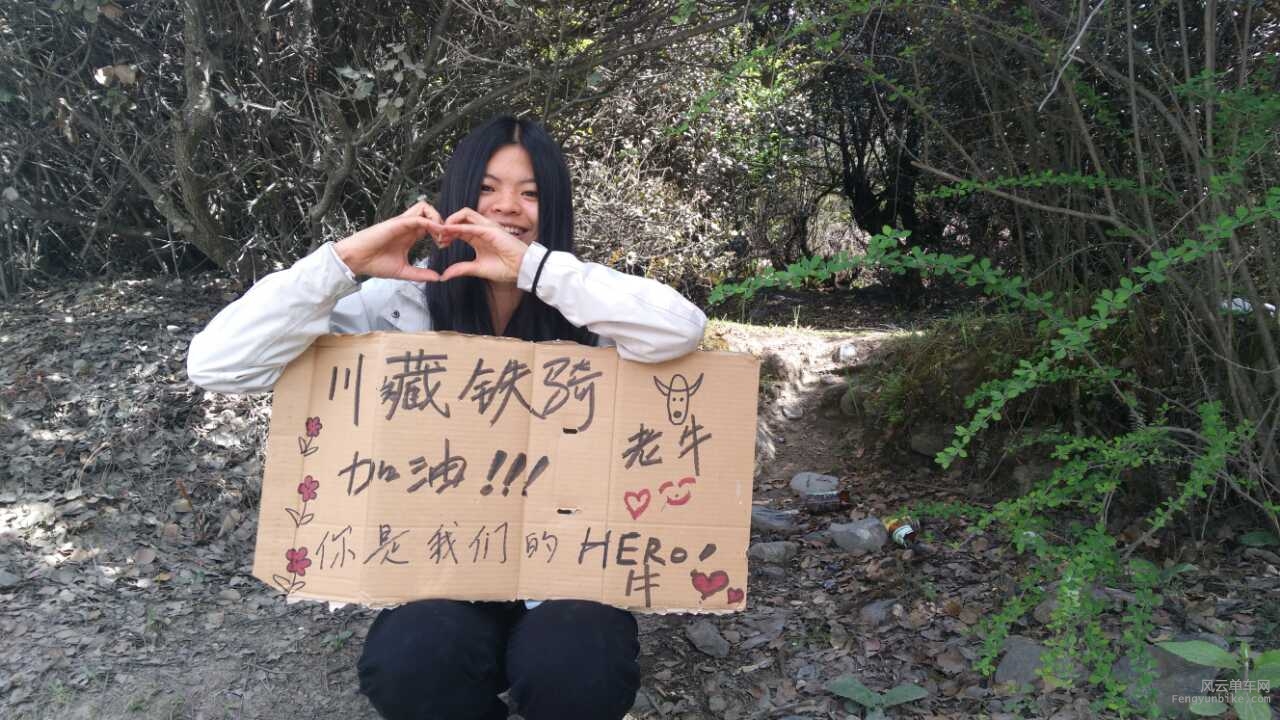 川藏铁骑
老牛
加油!!!
你是我们的HERO!
牛
风云单车网
Fengyunbike.com